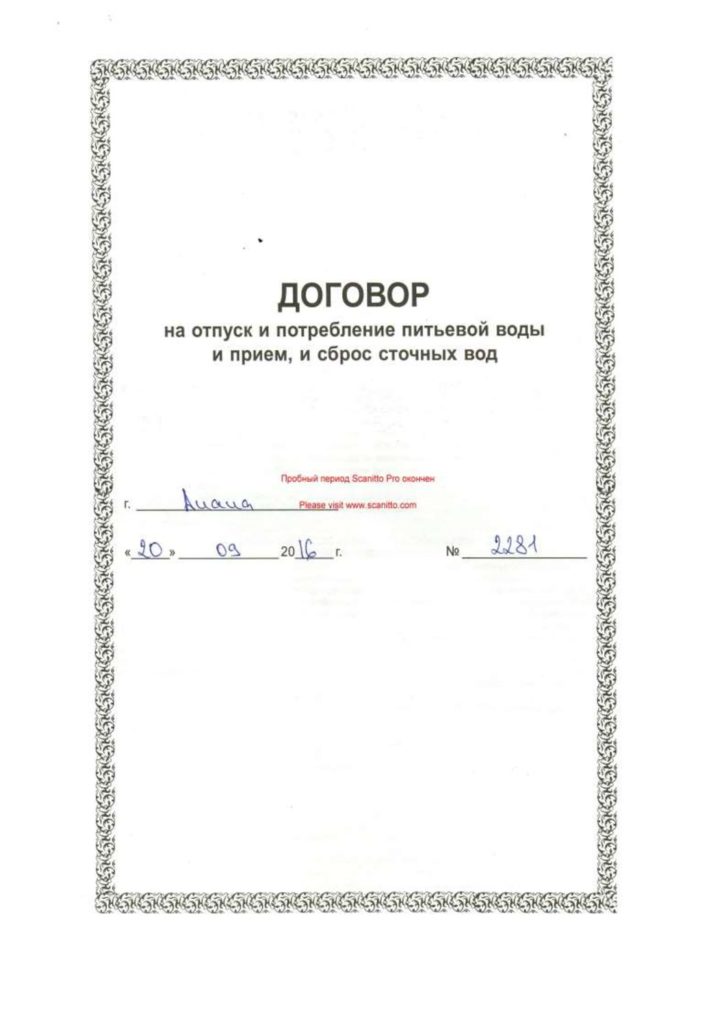 ДОГОВОР
на отпуск и потребление питьевой воды
и прием, и сброс сточных вод
Пробный период Scanitto Pro окончен
г.
Please visit www.scanitto.com
«20» 09 2016 г. № 2281